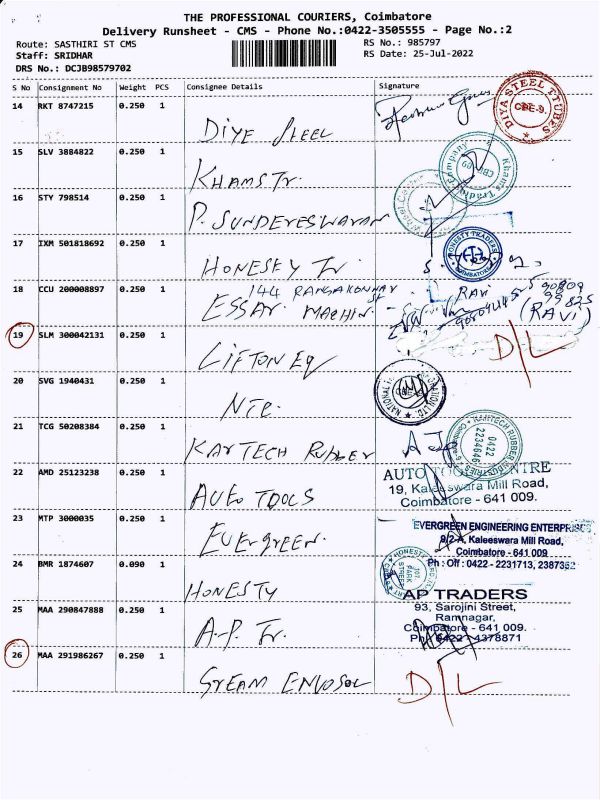 THE PROFESSIONAL COURIERS, Coimbatore
Delivery Runsheet - CMS - Phone No.:0422-3505555 - Page No.:2
Route: SASTHIRI ST CMS
RS No.: 985797
Staff: SRIDHAR
RS Date: 25-Jul-2022
DRS No.: DCJB98579702
S No Consignment No Weight PCS Consignee Details Signature
14 RKT 8747215 0.250 1
DIYE STEEL
DIYA STEEL TTUBES
CBE-9.
15 SLV 3884822 0.250 1
KHAMS Tr.
Khans Trading Company
16 STY 798514 0.250 1
P. SUNDERESWARAN
17 IXM 501818692 0.250 1
HONESTY Tr
HONESTY TRADERS
COIMBATORE
18 CCU 200008897 0.250 1
144 RANGAKONHAR ST
ESSAR MACHIN
RAVI
(RAVI)
19 SLM 300042131 0.250 1
LIFTON EQ
D/L
20 SVG 1940431 0.250 1
NTC
21 TCG 50208384 0.250 1
KARTECH RUBBER
KARTECH RUBBER INDUSTRIES
0422
2234646
22 AMD 25123238 0.250 1
AUTO TOOLS
AUTO TOOLS CENTRE
19, Kaleeswara Mill Road,
Coimbatore - 641 009.
23 MTP 3000035 0.250 1
EVERGREEN.
EVERGREEN ENGINEERING ENTERPRISES
9/2-A, Kaleeswara Mill Road,
Coimbatore - 641 009
Ph : Off : 0422 - 2231713, 2387352
24 BMR 1874607 0.090 1
HONESTY
107,
PARK
STREET
25 MAA 290847888 0.250 1
A.P. Tr.
AP TRADERS
93, Sarojini Street,
Ramnagar,
Coimbatore - 641 009.
Ph: 0422 - 4378871
26 MAA 291986267 0.250 1
STREAM ENVOSOL
D/L